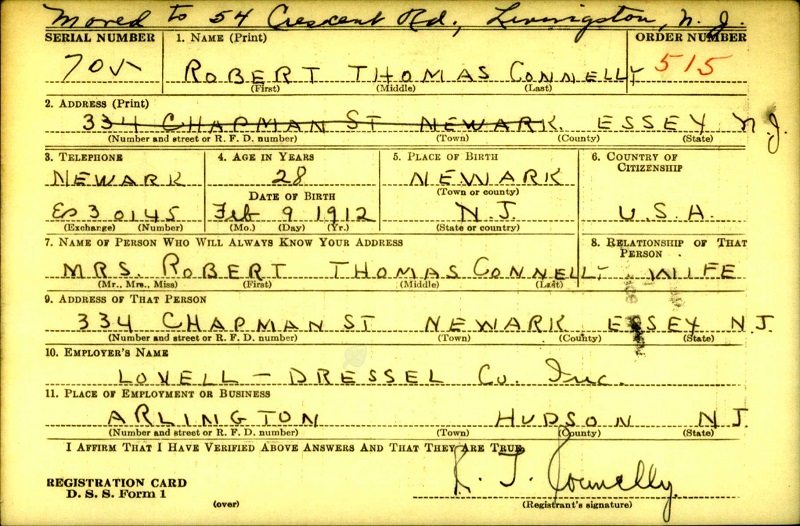 Moved to 54 Crescent Rd., Livingston, N. J.
SERIAL NUMBER 1. NAME (Print) ORDER NUMBER
705 ROBERT THOMAS CONNELLY 515
(First) (Middle) (Last)
2. ADDRESS (Print)
334 CHAPMAN ST NEWARK ESSEX N.J.
(Number and street or R. F. D. number) (Town) (County) (State)
3. TELEPHONE 4. AGE IN YEARS 5. PLACE OF BIRTH 6. COUNTRY OF CITIZENSHIP
NEWARK 28 NEWARK
DATE OF BIRTH (Town or county)
Es 3 0145 Feb 9 1912 N.J. U.S.A.
(Exchange) (Number) (Mo.) (Day) (Yr.) (State or country)
7. NAME OF PERSON WHO WILL ALWAYS KNOW YOUR ADDRESS 8. RELATIONSHIP OF THAT PERSON
MRS. ROBERT THOMAS CONNELLY WIFE
(Mr., Mrs., Miss) (First) (Middle) (Last)
9. ADDRESS OF THAT PERSON
334 CHAPMAN ST NEWARK ESSEX N.J.
(Number and street or R. F. D. number) (Town) (County) (State)
10. EMPLOYER'S NAME
LOVELL - DRESSEL Co. Inc.
11. PLACE OF EMPLOYMENT OR BUSINESS
ARLINGTON HUDSON NJ
(Number and street or R. F. D. number) (Town) (County) (State)
I AFFIRM THAT I HAVE VERIFIED ABOVE ANSWERS AND THAT THEY ARE TRUE.
R. T. Connelly.
REGISTRATION CARD
D. S. S. Form 1 (over) (Registrant's signature)